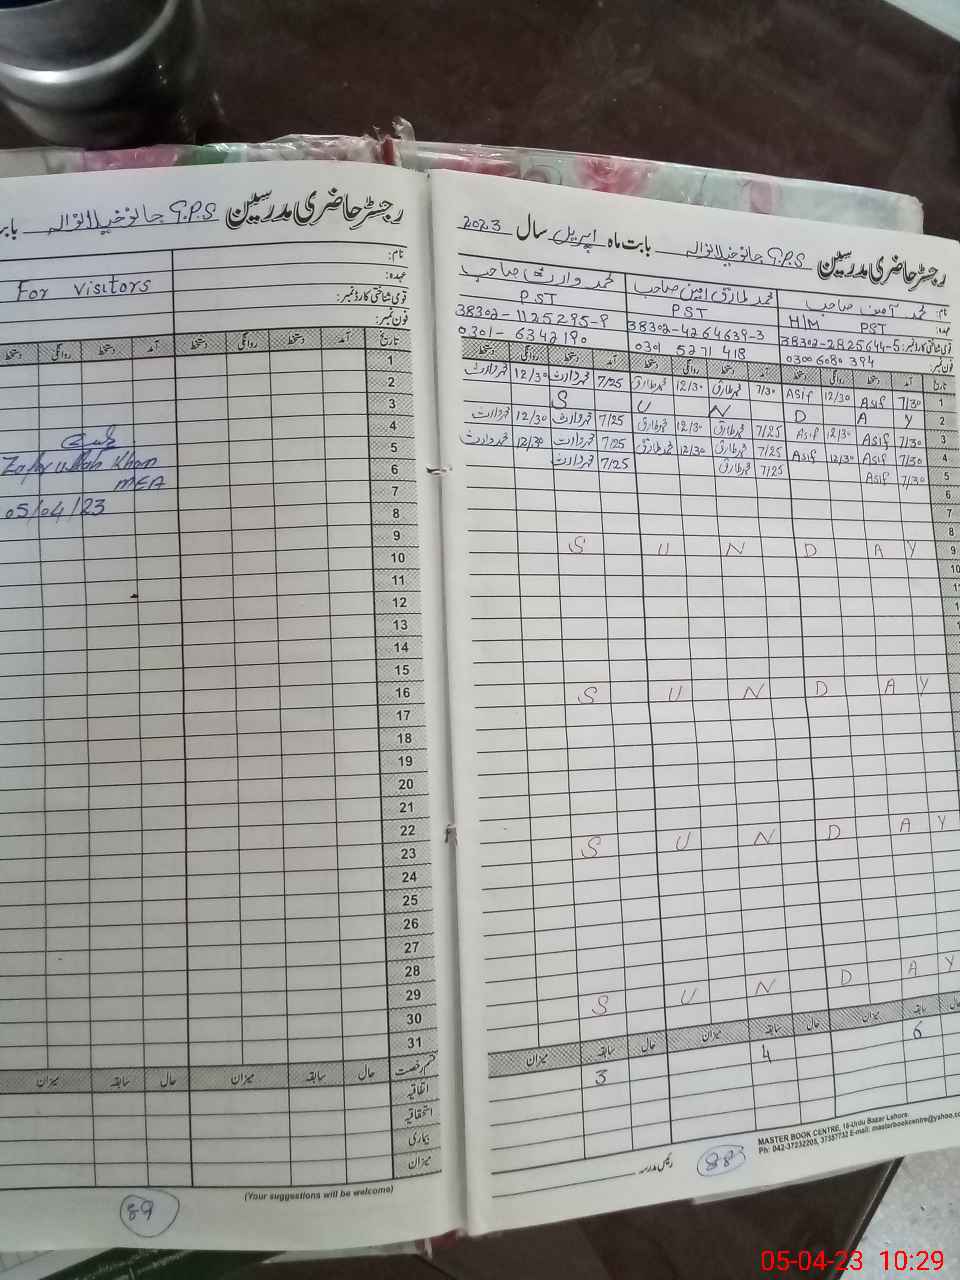 رجسٹر حاضری مدرسین G.P.S جانو خیلانوالہ بابت
نام:
عہدہ:
For visitors
قومی شناختی کارڈ نمبر:
فون نمبر:
تاریخ آمد دستخط روانگی دستخط آمد دستخط روانگی دستخط
1
2
3
4
5
Zafar ullah Khan
6
MEA
7
05/04/23
8
9
10
11
12
13
14
15
16
17
18
19
20
21
22
23
24
25
26
27
28
29
30
31
قسم رخصت حال سابقہ میزان حال سابقہ میزان
اتفاقیہ
استحقاقیہ
بیماری
میزان
(Your suggestions will be welcome)
89
رجسٹر حاضری مدرسین G.P.S جانو خیلانوالہ بابت ماہ اپریل سال 2023
نام: محمد آصف صاحب محمد طارق امین صاحب محمد وارث صاحب
عہدہ: H/M PST PST PST
قومی شناختی کارڈ نمبر: 38302-2825644-5 38302-4264639-3 38302-1125295-9
فون نمبر: 0300 6080 394 0301 5271 418 0301-6342190
تاریخ آمد دستخط روانگی دستخط آمد دستخط روانگی دستخط آمد دستخط روانگی دستخط
1 7/30 Asif 12/30 Asif 7/30 محمد طارق 12/30 محمد طارق 7/25 محمد وارث 12/30 محمد وارث
2 S U N D A Y
3 7/30 Asif 12/30 Asif 7/25 محمد طارق 12/30 محمد طارق 7/25 محمد وارث 12/30 محمد وارث
4 7/30 Asif 12/30 Asif 7/25 محمد طارق 12/30 محمد طارق 7/25 محمد وارث 12/30 محمد وارث
5 7/30 Asif 7/25 محمد طارق 7/25 محمد وارث
6
7
8
9 S U N D A Y
10
S U N D A Y
S U N D A Y
S U N D A Y
حال سابقہ میزان حال سابقہ میزان حال سابقہ میزان
6 4 3
MASTER BOOK CENTRE, 16-Urdu Bazar Lahore.
Ph: 042-37232205, 37357732 E-mail: masterbookcentre@yahoo.co
رئیس مدرسہ
88
05-04-23 10:29